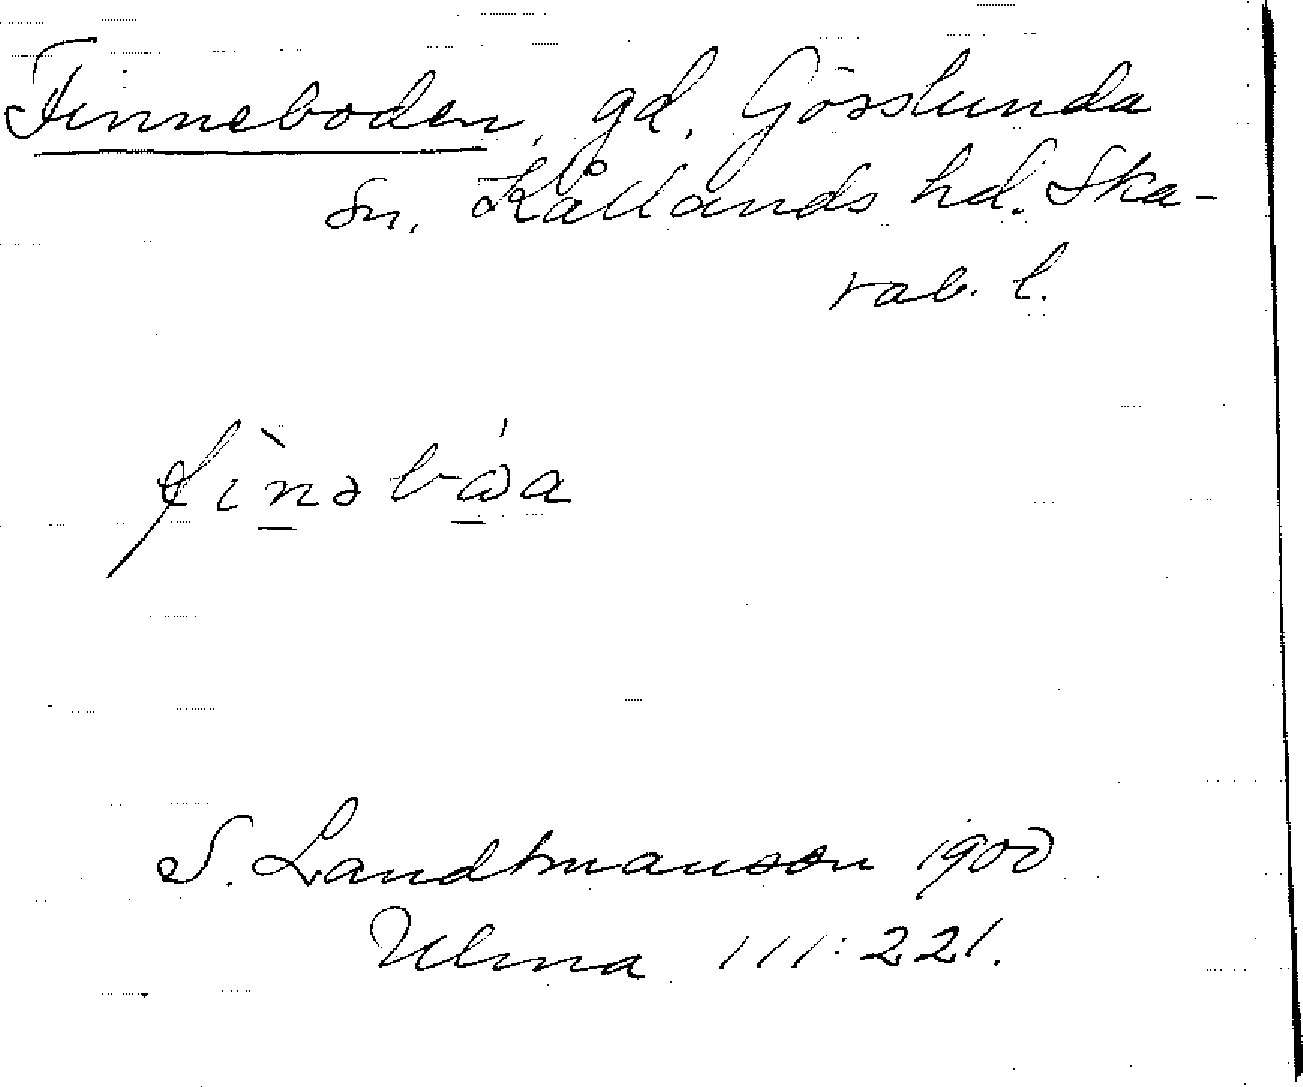 Finneboden, gd, Gösslunda
sn, Kållands hd. Ska-
rab. l.
S. Landtmanson 1900
Ulma 111:221.